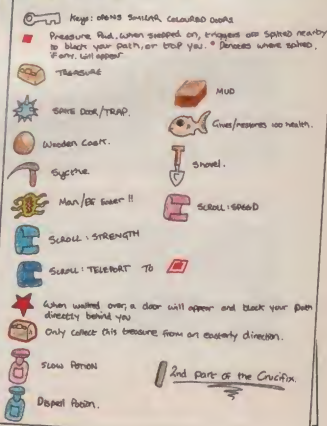 Keys: OPENS SIMILAR COLOURED DOORS
Pressure Pad, when stepped on, triggers off spiked nearby
to block your path, or trap you. * Denotes where spiked,
if any, will appear
TREASURE
MUD
SPIKE DOOR/TRAP.
Gives/restores 100 health.
Wooden Cask.
Shovel.
Sycthe
Man/BE Eater !!
SCROLL: SPEED
SCROLL: STRENGTH
SCROLL: TELEPORT TO
When walked over, a door will appear and block your path
directly behind you
Only collect this treasure from an easterly direction.
SLOW POTION
2nd part of the Crucifix.
Dispell Potion.